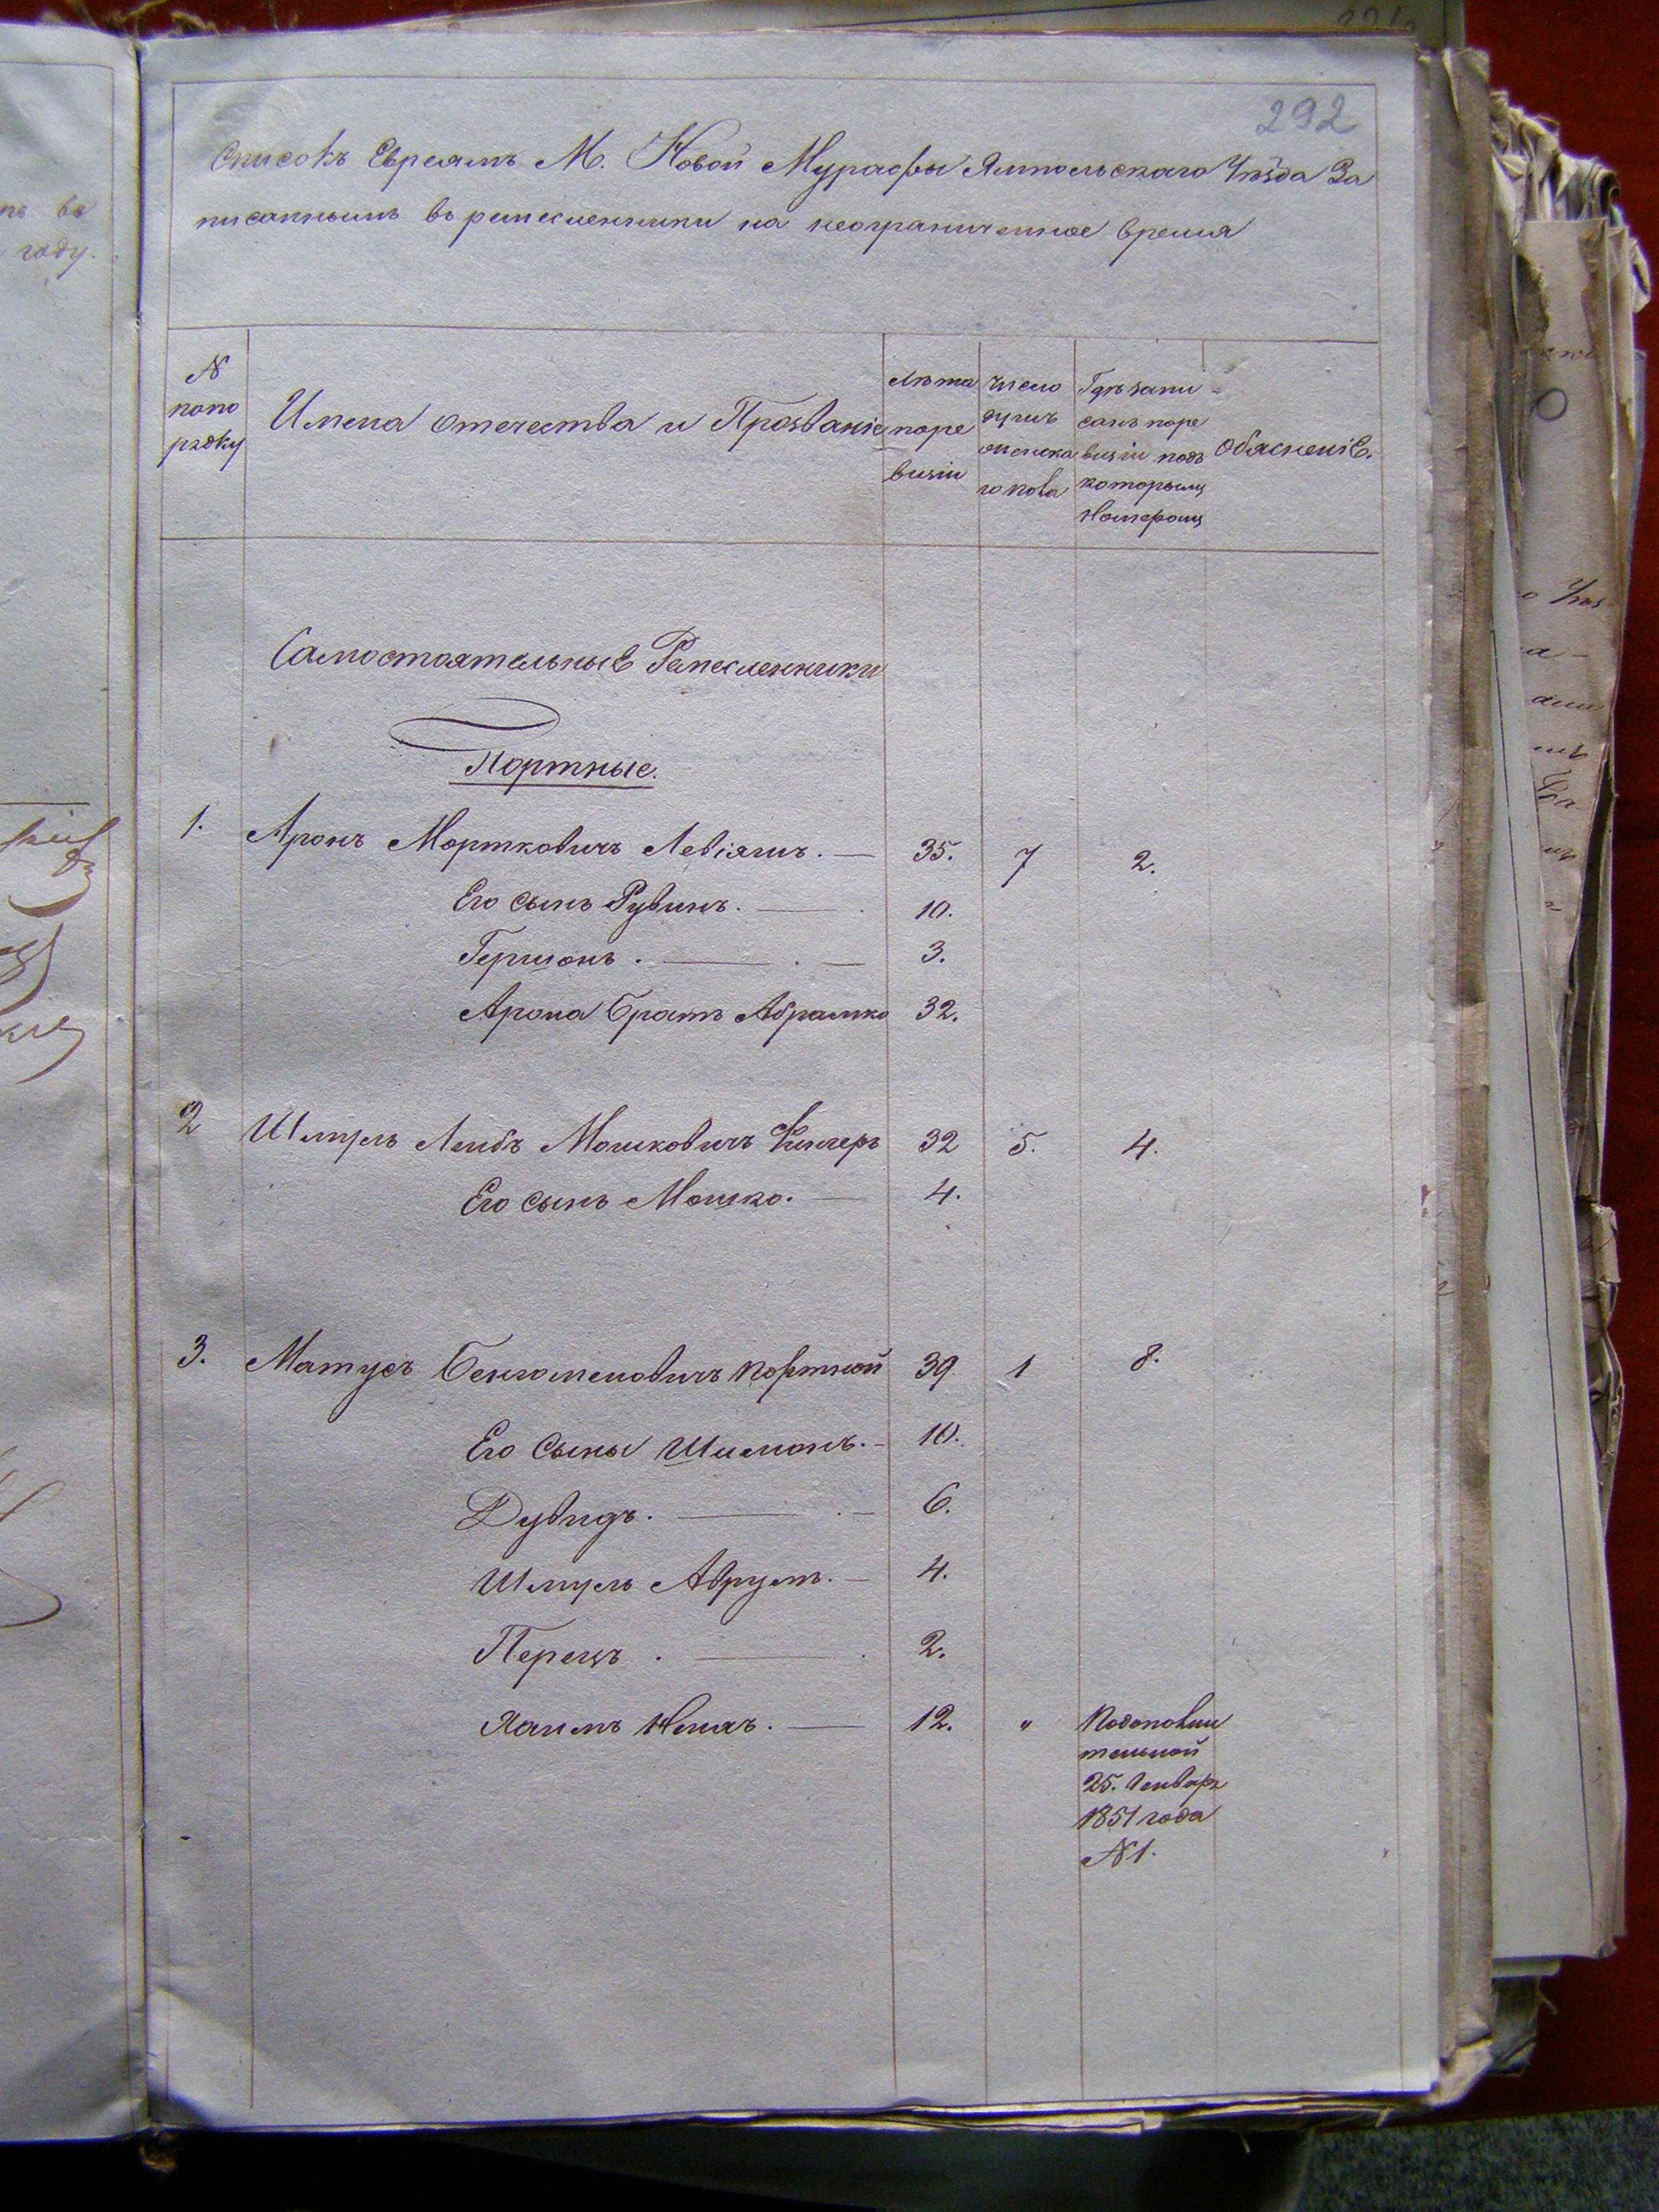 292
Списокъ Евреямъ М. Новой Мурафы Ямпольскаго Уѣзда За
писаннымъ въ ремесленники на неограниченное время
N
попо
рядку
Имена отечества и Прозваніе
Лѣта
поре
визіи
Число
душъ
мужска
го пола
Гдѣ запи
санъ поре
визіи подъ
которымъ
Номеромъ
Обясненіе.
Самостоятельные Ремесленники
Портные.
1. Аронъ Мортковичъ 35. 7 2.
Его сынъ Рувинъ. 10.
Гершонъ. 3.
Арона братъ Абрамко 32.
2 Шмуль Лейбъ Мошковичъ 32 5. 4.
Его сынъ Мошко. 4.
3. Матусъ Бенюменовичъ Портной 39 1 8.
Его Сыны Шимонъ. 10.
Дувидъ. 6.
Шмуль Аврумъ. 4.
Перецъ. 2.
Хаимъ 12. "
Подополни
тельной
25. Генваря
1851 года
N 1.
пъ во
году.